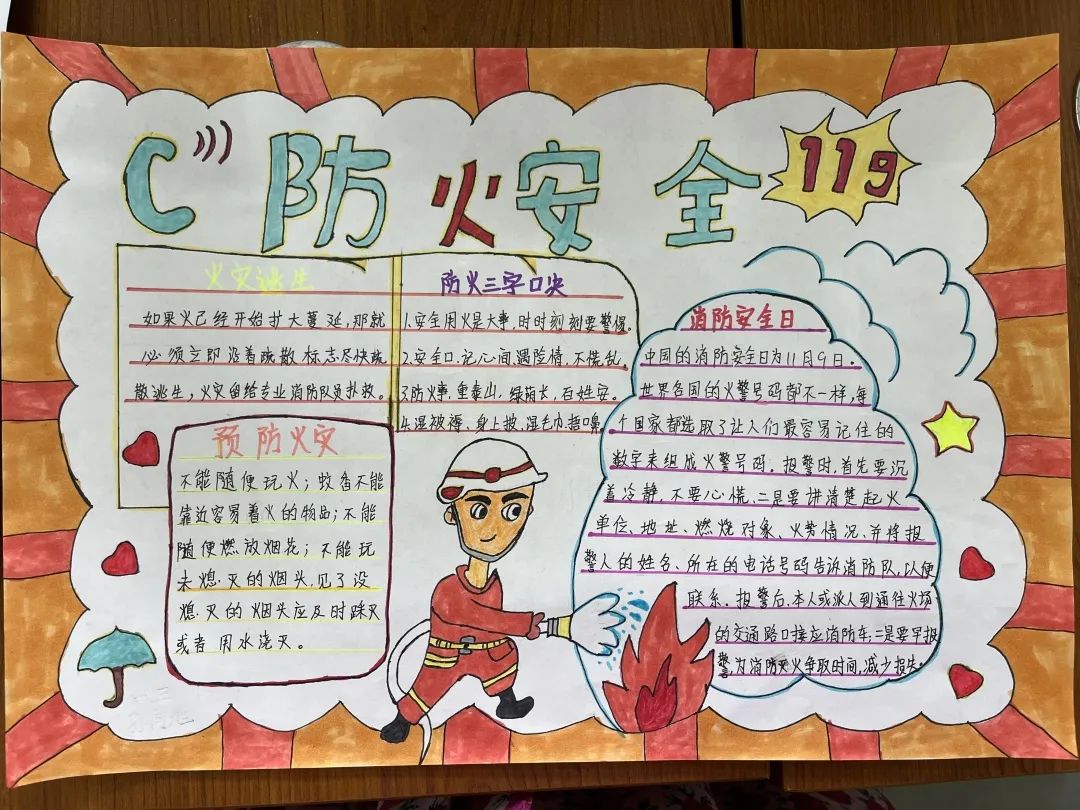 防火安全
119
火灾逃生
如果火已经开始扩大蔓延，那就
必须立即沿着疏散标志尽快疏
散逃生，火灾留给专业消防队员扑救。
防火三字口决
1.安全用火是大事，时时刻刻要警惕。
2.安全口、记心间，遇险情、不慌乱。
3.防火事，重泰山，绿荫长，百姓安。
4.湿被褥、身上披，湿毛巾捂口鼻。
预防火灾
不能随便玩火；蚊香不能
靠近容易着火的物品；不能
随便燃放烟花；不能玩
未熄灭的烟头，见了没
熄灭的烟头应及时踩灭
或者用水浇灭。
消防安全日
中国的消防安全日为11月9日。
世界各国的火警号码都不一样，每
个国家都选取了让人们最容易记住的
数字来组成火警号码。报警时，首先要沉
着冷静，不要心慌、二是要讲清楚起火
单位、地址、燃烧对象、火势情况、并将报
警人的姓名、所在的电话号码告诉消防队，以便
联系。报警后，本人或派人到通往火场
的交通路口接应消防车，三是要早报
警，为消防灭火争取时间，减少损失。